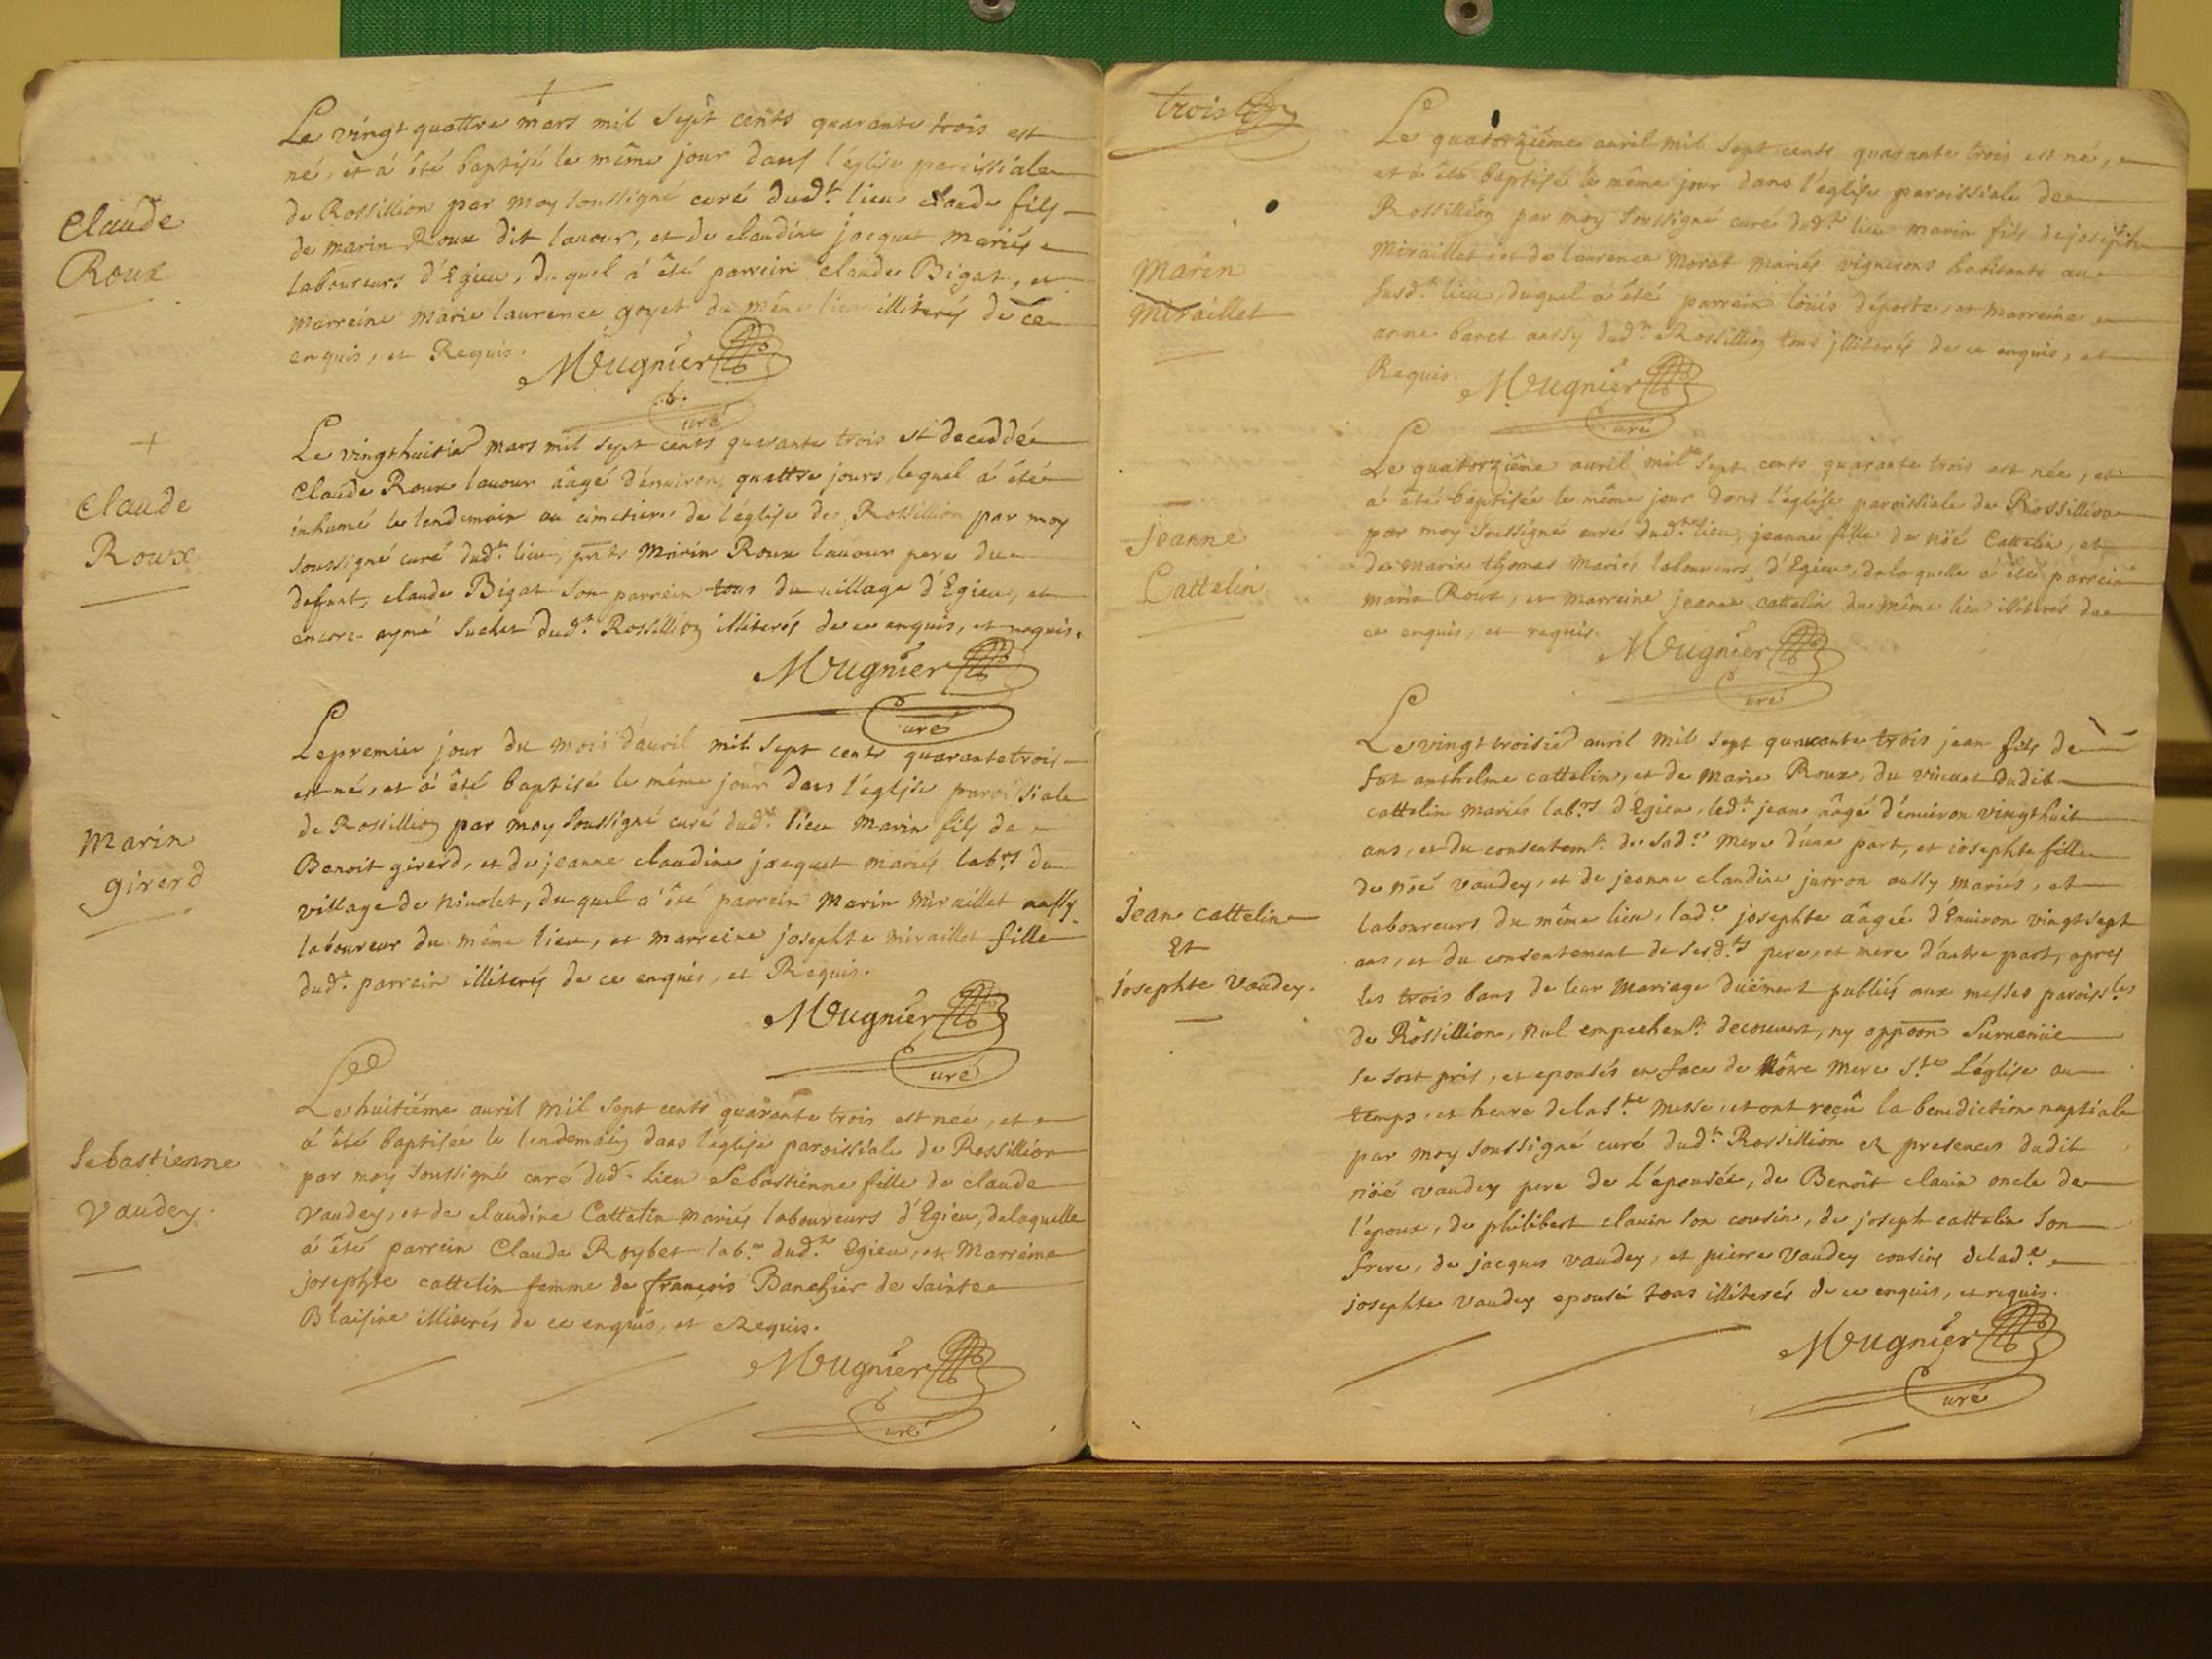 Claude
Roux
Le vingt quattre mars mil sept cents quarante trois est
né, et à été baptisé le même jour dans l'église paroissiale
de Rossillion par moy soussigné curé dud.t lieu claude fils
de marin Roux dit lauour, et de claudine jacquet mariés
laboureurs d'Egieu, duquel à êté parrein claude Bigat, et
marreine marie laurence goyet du même lieu illiterés de ce
enquis, et Requis.
Mugnier
curé
Claude
Roux
Le vingthuitie mars mil sept cents quarante trois est deceddé
Claude Roux lauour âagé d'enuiron quattre jours, lequel à été
inhumé le lendemain au cimetiere de l'église de Rossillion par moy
soussigné curé dud.t lieu, pnts Marin Roux lauour pere du
defunt, claude Bigat son parrein tous du uillage d'Egieu, et
encore aymé suchet dud.t Rossillion illiterés de ce enquis, et requis.
Mugnier
curé
Marin
girerd
Le premier jour du mois d'auril mil sept cents quarante trois
est né, et à êté baptisé le même jour dans l'église paroissiale
de Rossillion par moy soussigné curé dud.t lieu Marin fils de
Benoit girerd, et de jeanne claudine jacquet mariés lab.rs du
village de niuolet, duquel à êté parrein Marin miraillet aussy
laboureur du même lieu, et marreine josephte miraillet fille
dud.t parrein illiterés de ce enquis, et Requis.
Mugnier
curé
Sebastienne
Vaudey.
Le huitiéme auril mil sept cents quarante trois est née, et
à été baptisée le lendemain dans l'église paroissiale de Rossillion
par moy soussigné curé dud.t lieu Sebastienne fille de claude
Vaudey, et de claudine Cattelin mariés laboureurs d'Egieu, delaquelle
à êté parrein Claude Roybet lab.r dud.t Egieu, et Marreine
josephte cattelin femme de françois Banchier de sainte
Blaisine illiterés de ce enquis, et Requis.
Mugnier
curé
trois
Marin
Miraillet
Le quatorziême auril mil sept cents quarante trois est né,
et à êté baptisé le même jour dans l'église paroissiale de
Rossillion par moy soussigné curé dud.t lieu marin fils de joseph
Miraillet, et de laurence Morat mariés vignerons habitants au
susd.t lieu, duquel à été parrein loüis déporte, et marreine
anne baret aussy dud.t Rossillion tous jlliterés de ce enquis, et
Requis.
Mugnier
curé
jeanne
Cattelin
Le quatorziême auril mil sept cents quarante trois est née, et
à êté baptisée le même jour dans l'église paroissiale de Rossillion
par moy soussigné curé dud.t lieu, jeanne fille de nöé Cattelin, et
de marie thomas mariés laboureurs d'Egieu, delaquelle à été parrein
marin Roux, et marreine jeanne cattelin du même lieu illiterés de
ce enquis, et requis.
Mugnier
curé
Jean cattelin
Et
josephte Vaudey.
Le vingt troisie auril mil sept quarante trois jean fils de
fût anthelme cattelin, et de Marie Roux, du viuant dudit
cattelin mariés lab.rs d'Egieu, led.t jean âagé d'enuiron vingthuit
ans, et du consentem.t de sad.e mere d'une part, et iosephte fille
de nöé vaudey, et de jeanne claudine jurron aussy mariés, et
laboureurs du même lieu, lad.e josephte âagée d'Enuiron vingtsept
ans, et du consentement de sesd.ts pere, et mere d'autre part, apres
les trois bans de leur mariage duëment publiés aux messes paroiss.les
de Rossillion, nul empechem.t decouuert, ny oppoon suruenüe
se sont pris, et epousés en face de Nôtre mere S.te L'église au
temps, et heure de la S.te messe, et ont reçû la benediction nuptiale
par moy soussigné curé dud.t Rossillion ez presences dudit
nöé vaudey pere de L'épousée, de Benoît clauin oncle de
l'époux, de philibert clauin son cousin, de joseph cattelin son
frere, de jacques vaudey, et pierre vaudey cousins delad.e
josephte vaudey epousé tous illiterés de ce enquis, et requis.
Mugnier
curé